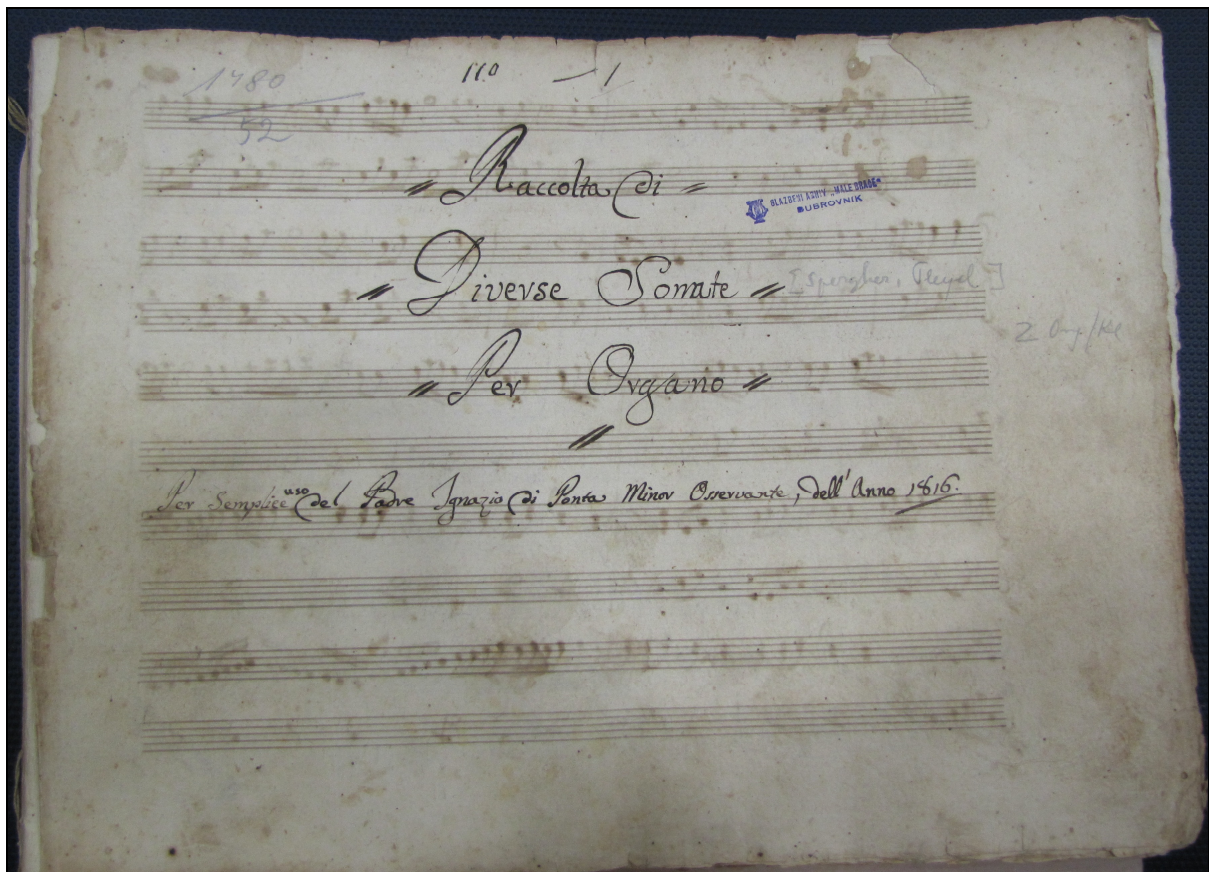 1480
52
110 — 1
Raccolta di
GLAZBENI ARHIV „MALE BRAĆE"
DUBROVNIK
Diverse Sonate
[Spergher, Pleyel]
Per Organo
Per Semplice uso del Padre Ignazio di Ponta Minor Osservante, dell' Anno 1816.